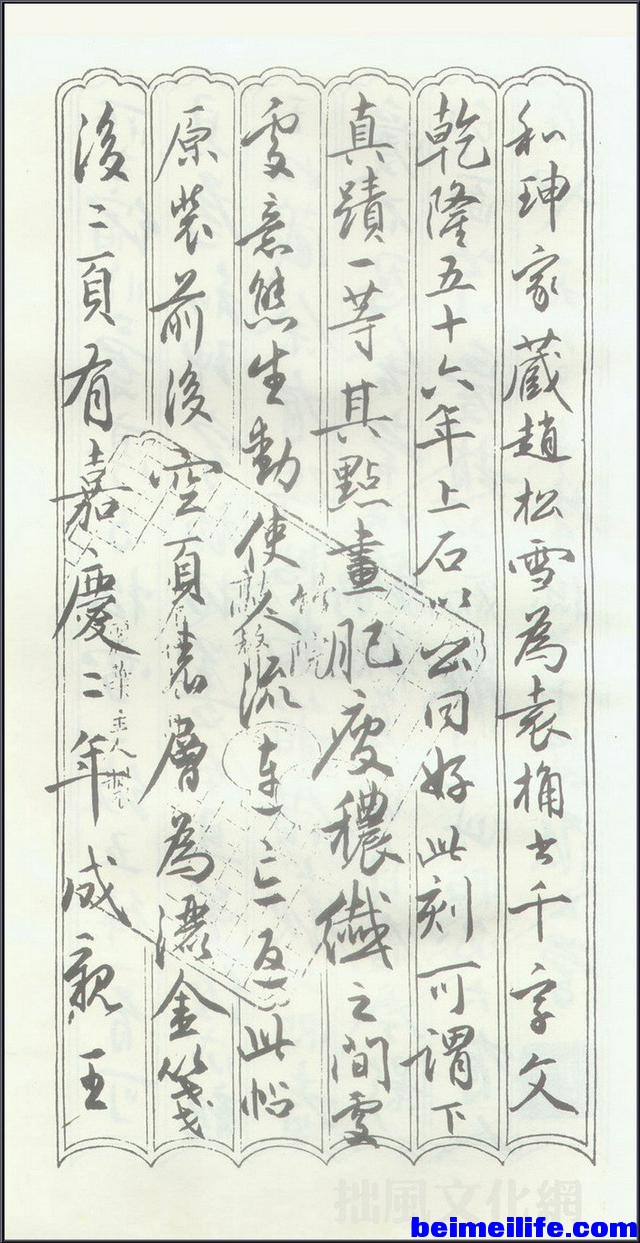 和珅家藏趙松雪為袁桷書千字文
乾隆五十六年上石以公同好此刻可謂下
真蹟一等其點畫肥瘦穠纖之間處
處意態生動使人流連忘返此帖
原裝前後空頁表層為灑金箋
後二頁有嘉慶二年成親王
主人
拙風文化網
beimeilife.com